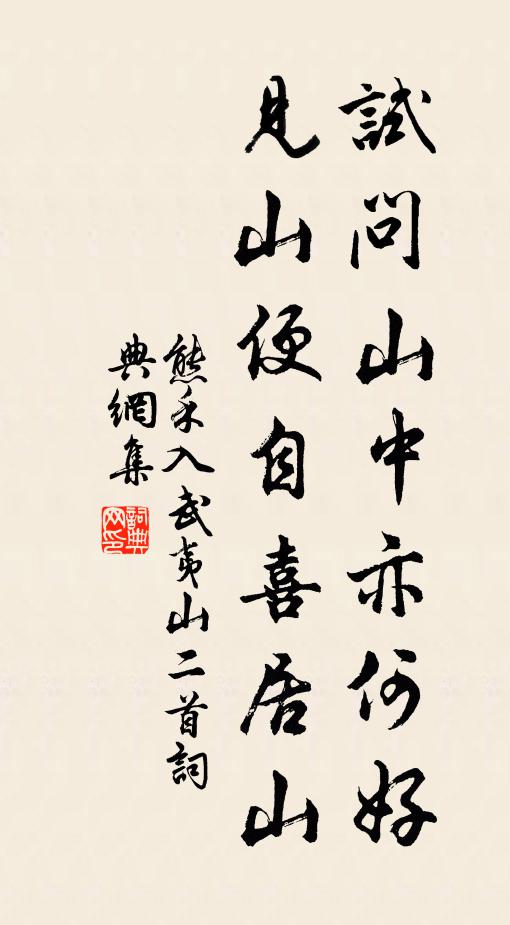 試問山中亦何好
見山便自喜居山
熊禾入武夷山二首詞
典網集
詞典网印